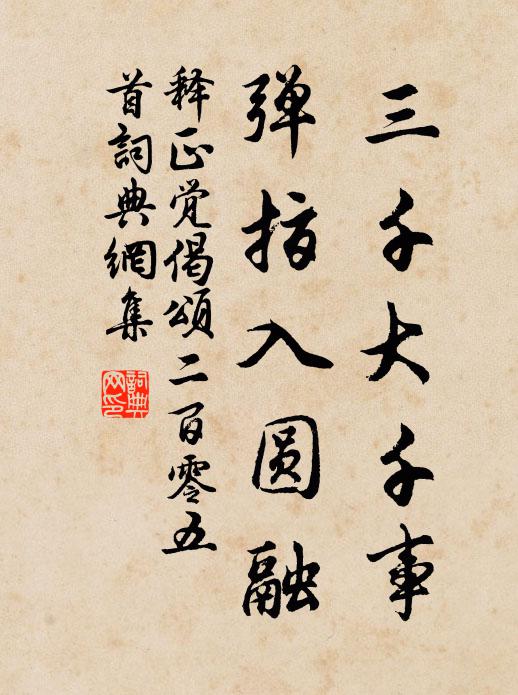 三千大千事
弹指入圆融
释正觉偈頌二百零五
首詞典網集
詞典
网印